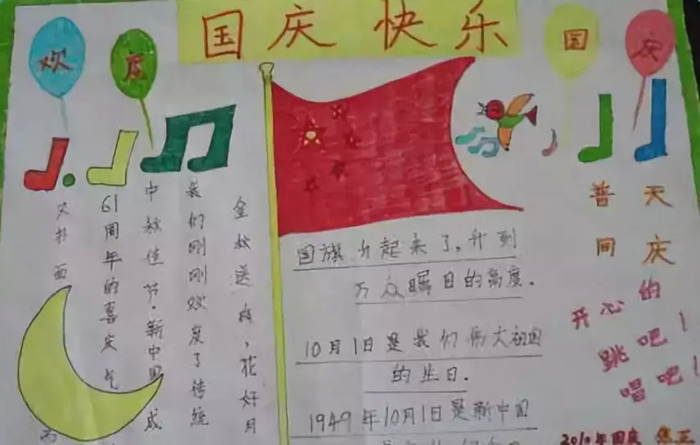 国庆 快乐
欢度
国庆
金秋送爽,花好月
我们刚刚欢度了传统
中秋佳节·新中国成
61周年的喜庆气
又扑面
国旗升起来了,升到
万众瞩目的高度.
10月1日是我们伟大祖国
的生日.
1949年10月1日是新中国
普天
同庆
开心的
跳吧!
唱吧!
2010年国庆